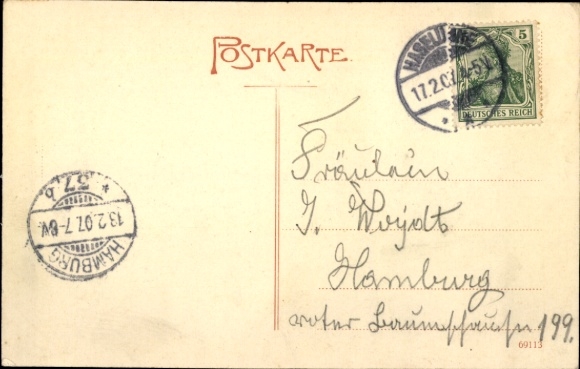 POSTKARTE.
HASELÜNNE
17.2.07. 4-5N.
5
DEUTSCHES REICH
* 37 b
13.2.07. 7-8V.
HAMBURG
Fräulein
J. Woydt
Hamburg
roter Baumschausse 199.
69113